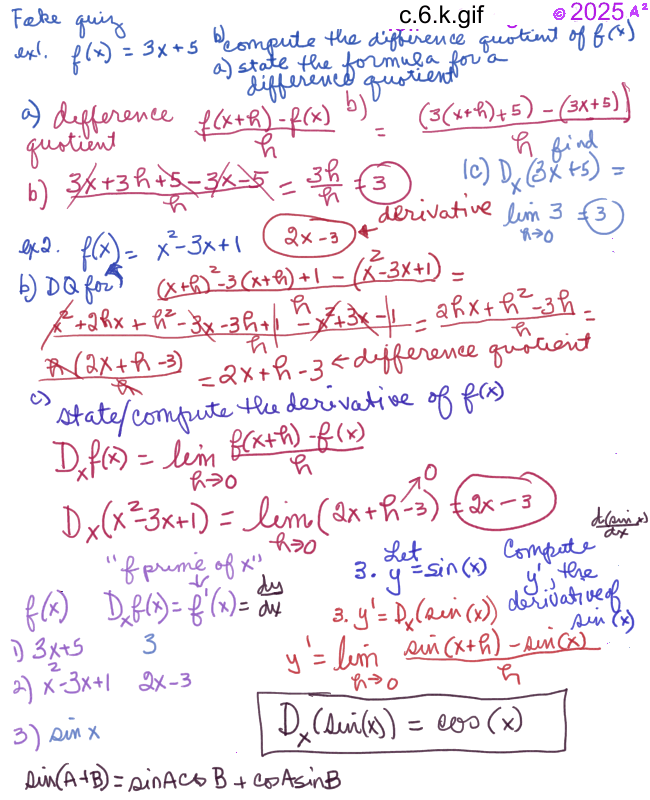 c.6.k.gif
© 2025 A²
Fake quiz
ex1. f(x) = 3x+5
b) compute the difference quotient of f(x)
a) state the formula for a
difference quotient
a) difference quotient
f(x+h) - f(x) / h
b) = (3(x+h)+5) - (3x+5) / h
b) 3x+3h+5-3x-5 / h = 3h/h = 3
find
(c) Dx(3x+5) =
lim h→0 3 = 3
ex2. f(x) = x²-3x+1
2x-3 ← derivative
b) DQ for
(x+h)²-3(x+h)+1 - (x²-3x+1) / h =
x²+2hx+h²-3x-3h+1 - x²+3x-1 / h = 2hx+h²-3h / h =
h(2x+h-3) / h = 2x+h-3 ← difference quotient
c) state/compute the derivative of f(x)
Dxf(x) = lim h→0 f(x+h)-f(x) / h
Dx(x²-3x+1) = lim h→0 (2x+h-3) = 2x-3
0
d(sinx)/dx
"f prime of x"
f(x) Dxf(x) = f'(x) = dy/dx
1) 3x+5 3
2) x²-3x+1 2x-3
3) sin x
Let
3. y = sin(x)
Compute
y', the
derivative of
sin(x)
3. y' = Dx(sin(x))
y' = lim h→0 sin(x+h) - sin(x) / h
Dx(sin(x)) = cos(x)
sin(A+B) = sinAcosB + cosAsinB